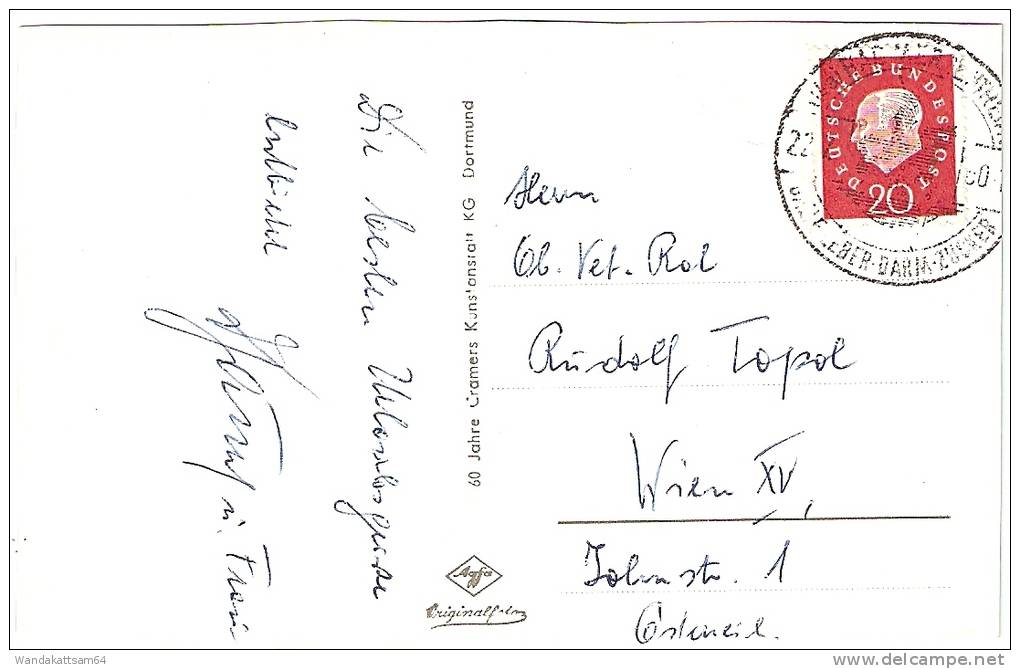 Die besten Urlaubsgrüsse
entbietet
60 Jahre Cramers Kunstanstalt KG Dortmund
Agfa
Originalfoto
DEUTSCHE BUNDESPOST
20
22
60
LEBER-DARM-ZUCKER
Herrn
Ob. Vet. Rat
Rudolf Topol
Wien XV,
Johnstr. 1
Österreich.
Wandakattsam64
delcampe.net